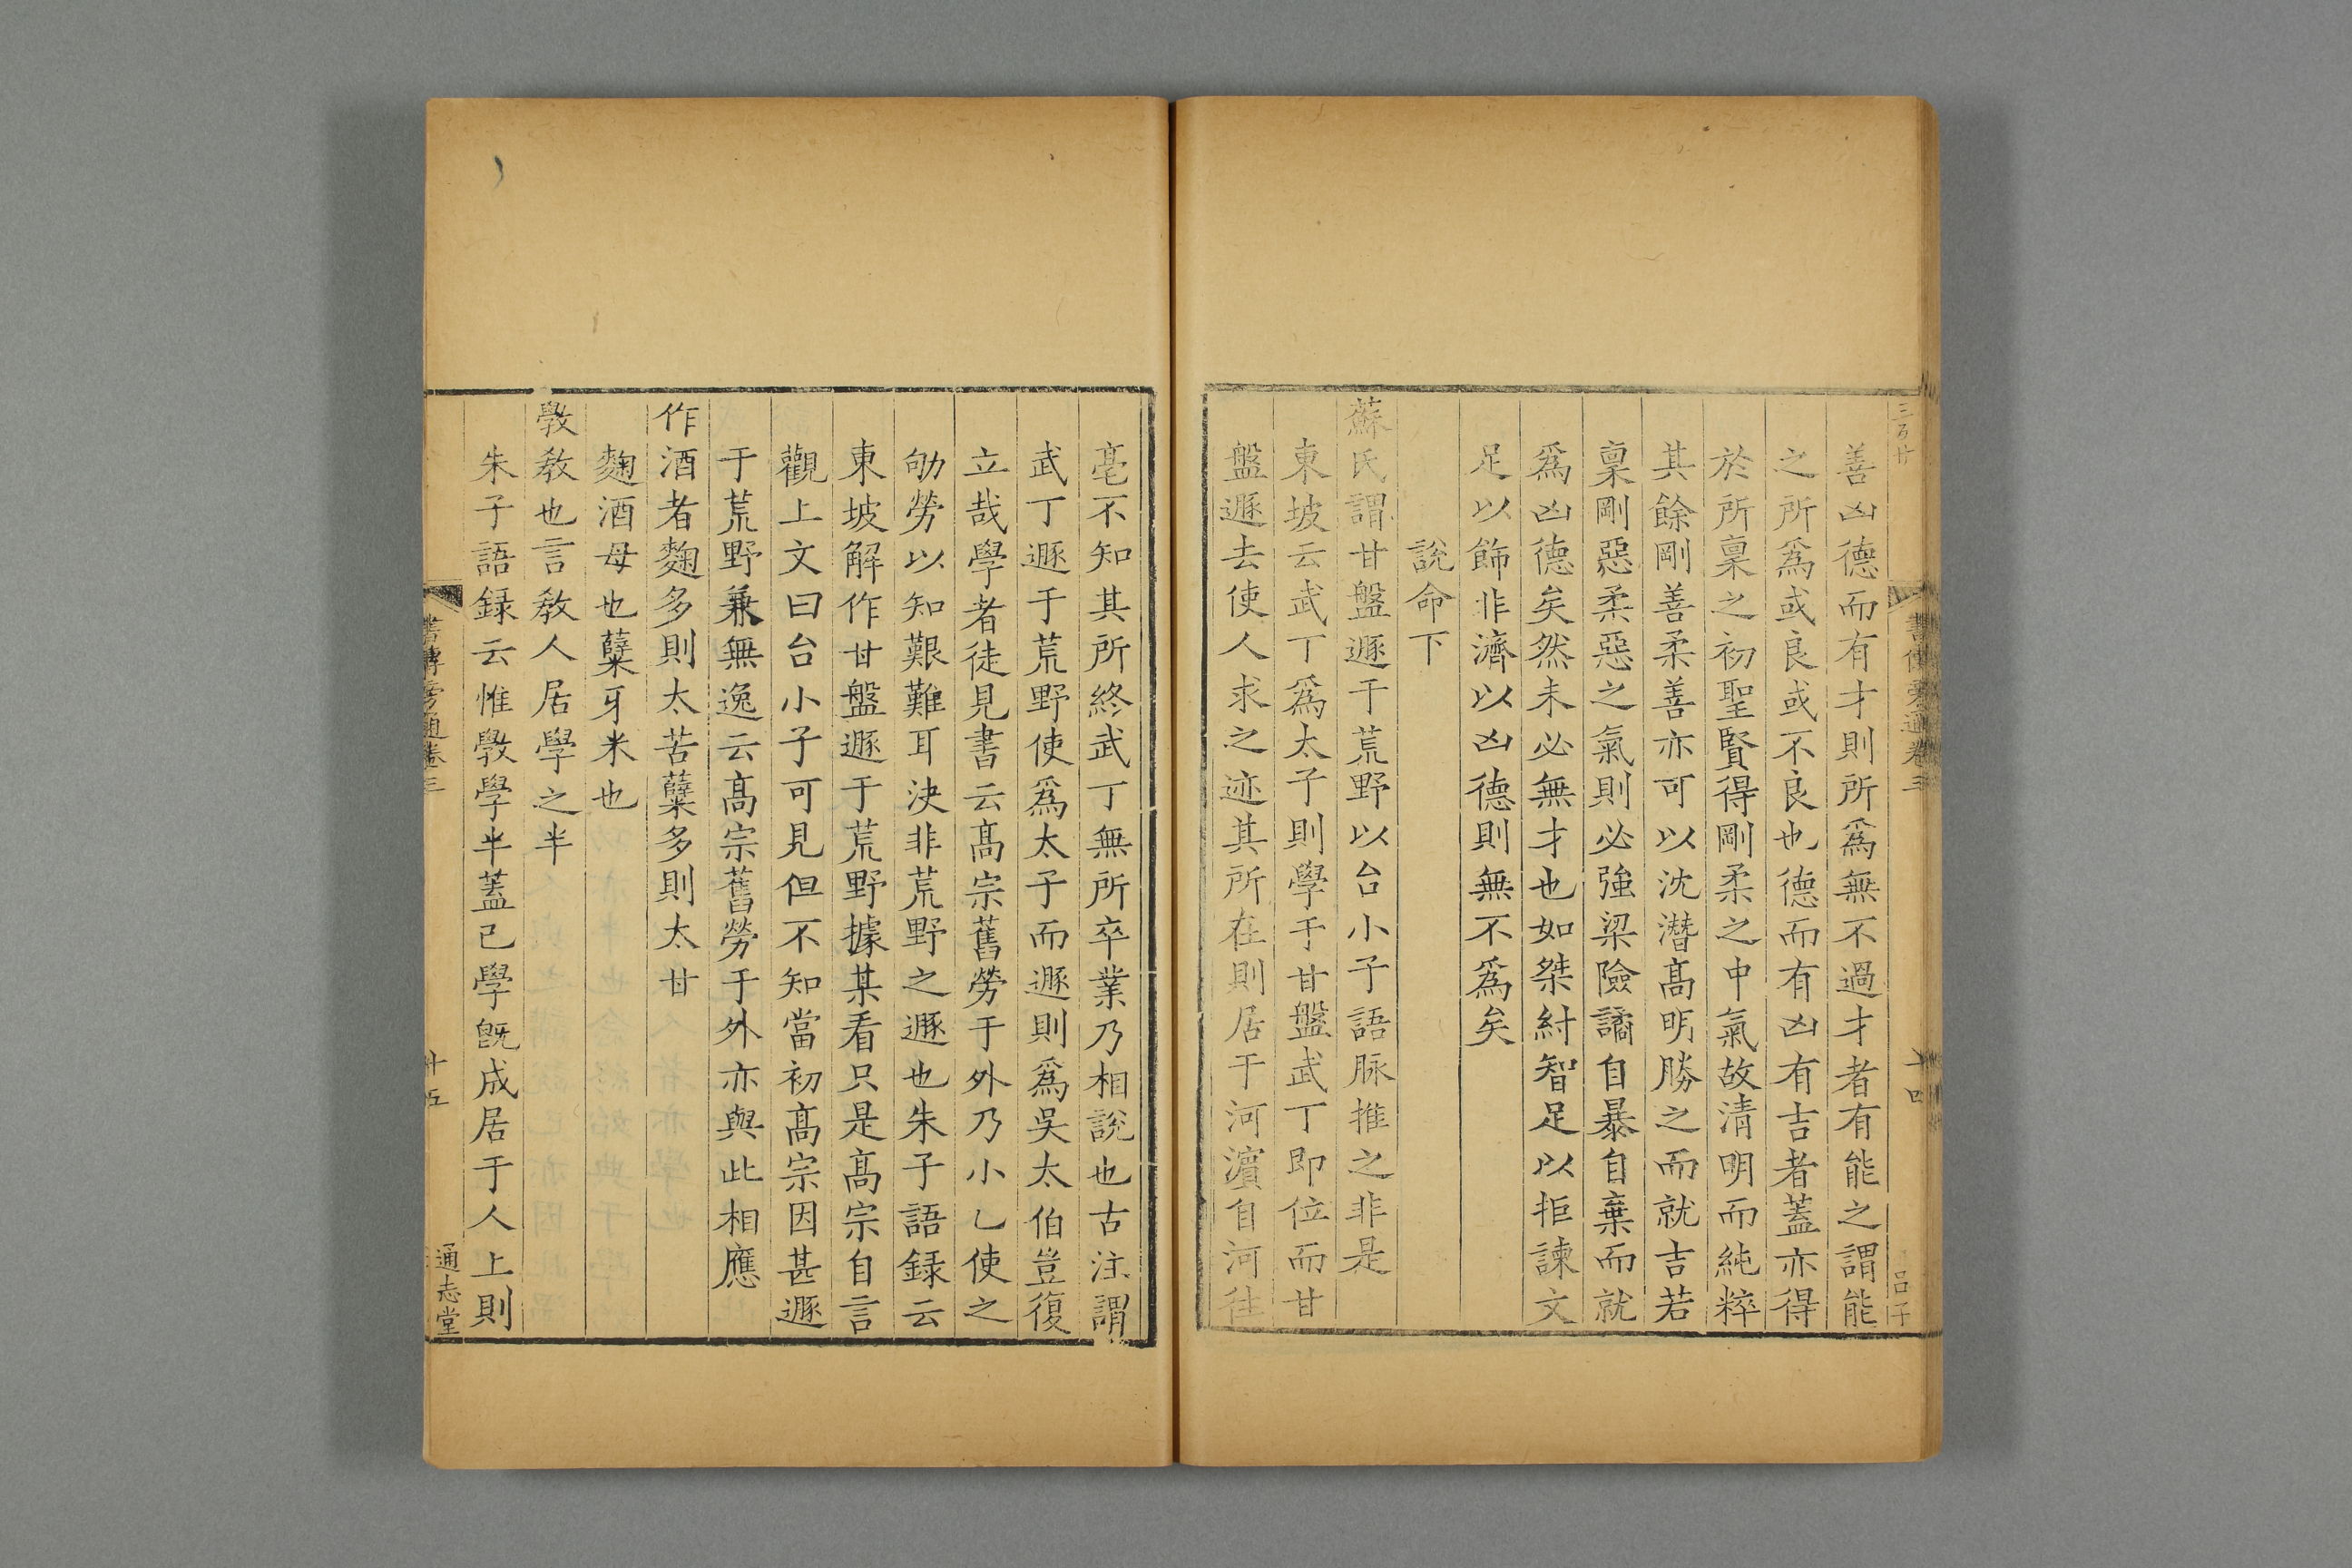 三百廿
書傳旁通卷三
十四
呂子
善凶德而有才則所爲無不過才者有能之謂能
之所爲或良或不良也德而有凶有吉者蓋亦得
於所稟之初聖賢得剛柔之中氣故清明而純粹
其餘剛善柔善亦可以沈潛髙明勝之而就吉若
稟剛惡柔惡之氣則必強梁險譎自暴自棄而就
爲凶德矣然未必無才也如桀紂智足以拒諫文
足以飾非濟以凶德則無不爲矣
說命下
蘇氏謂甘盤遯于荒野以台小子語脉推之非是
東坡云武丁爲太子則學于甘盤武丁即位而甘
盤遯去使人求之迹其所在則居于河濵自河徃
亳不知其所終武丁無所卒業乃相說也古注謂
武丁遯于荒野使爲太子而遯則爲吳太伯豈復
立哉學者徒見書云髙宗舊勞于外乃小乚使之
劬勞以知艱難耳決非荒野之遯也朱子語録云
東坡解作甘盤遯于荒野據某看只是髙宗自言
觀上文曰台小子可見但不知當初髙宗因甚遯
于荒野兼無逸云髙宗舊勞于外亦與此相應
作酒者麴多則太苦蘖多則太甘
麴酒母也蘖牙米也
斆敎也言敎人居學之半
朱子語録云惟斆學半蓋已學旣成居于人上則
書傳旁通卷三
十五
通志堂